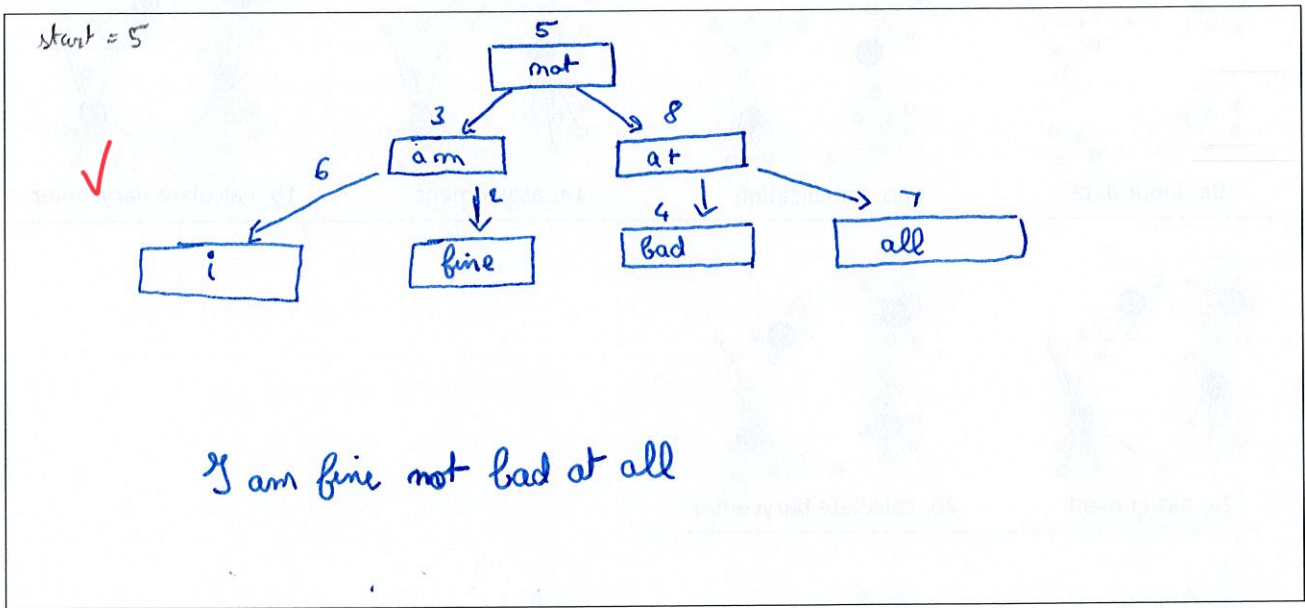 start = 5
5
not
3
8
am
at
6
7
2
4
i
fine
bad
all
I am fine not bad at all